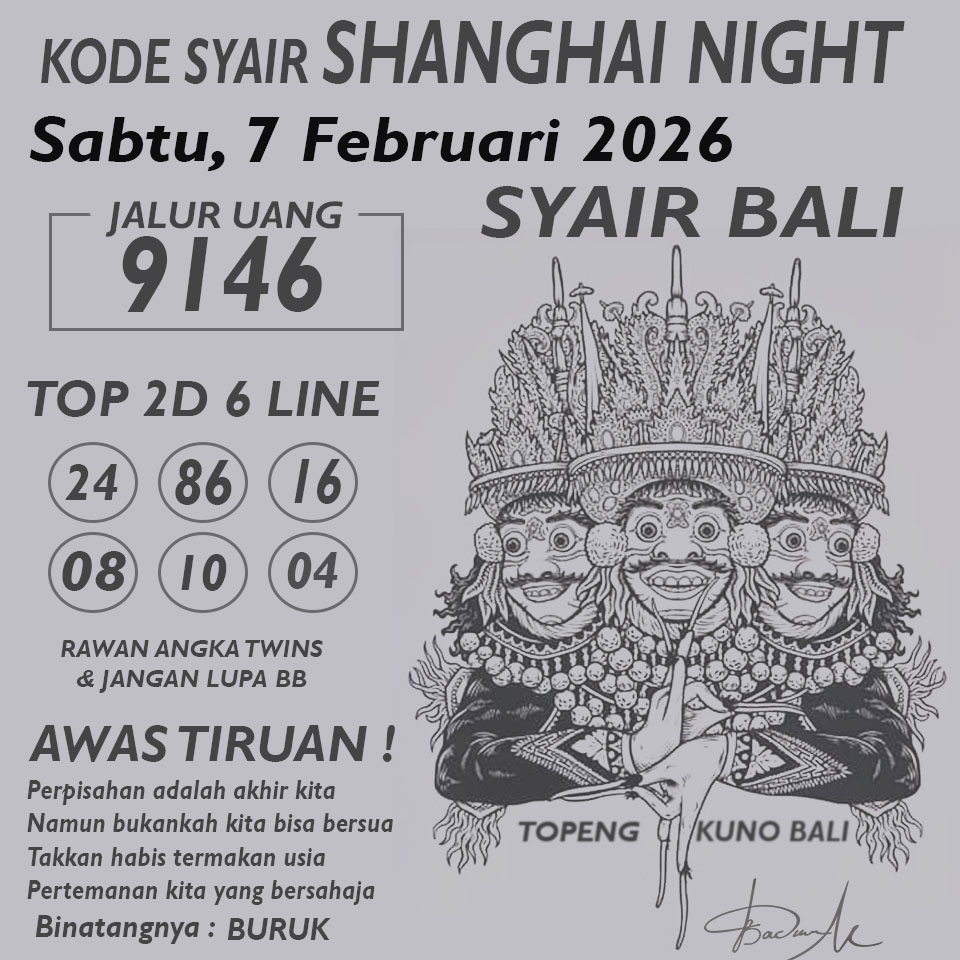 KODE SYAIR SHANGHAI NIGHT
Sabtu, 7 Februari 2026
SYAIR BALI
JALUR UANG
9146
TOP 2D 6 LINE
24 86 16
08 10 04
RAWAN ANGKA TWINS
& JANGAN LUPA BB
AWAS TIRUAN !
Perpisahan adalah akhir kita
Namun bukankah kita bisa bersua
Takkan habis termakan usia
Pertemanan kita yang bersahaja
Binatangnya : BURUK
TOPENG KUNO BALI